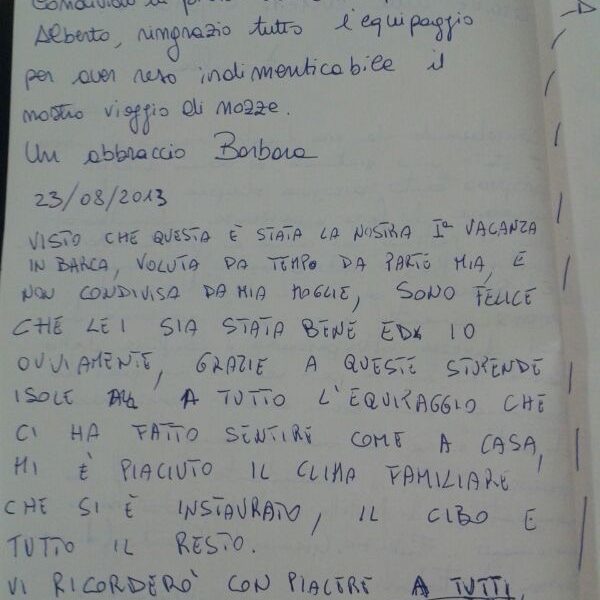 Condivido
Alberto, ringrazio tutto l'equipaggio
per aver reso indimenticabile il
nostro viaggio di nozze.
Un abbraccio Barbara
23/08/2013
VISTO CHE QUESTA E' STATA LA NOSTRA Iª VACANZA
IN BARCA, VOLUTA DA TEMPO DA PARTE MIA, E
NON CONDIVISA DA MIA MOGLIE, SONO FELICE
CHE LEI SIA STATA BENE ED IO
OVVIAMENTE, GRAZIE A QUESTE STUPENDE
ISOLE A TUTTO L'EQUIPAGGIO CHE
CI HA FATTO SENTIRE COME A CASA,
MI È PIACIUTO IL CLIMA FAMILIARE
CHE SI È INSTAURATO, IL CIBO E
TUTTO IL RESTO.
VI RICORDERO' CON PIACERE A TUTTI,